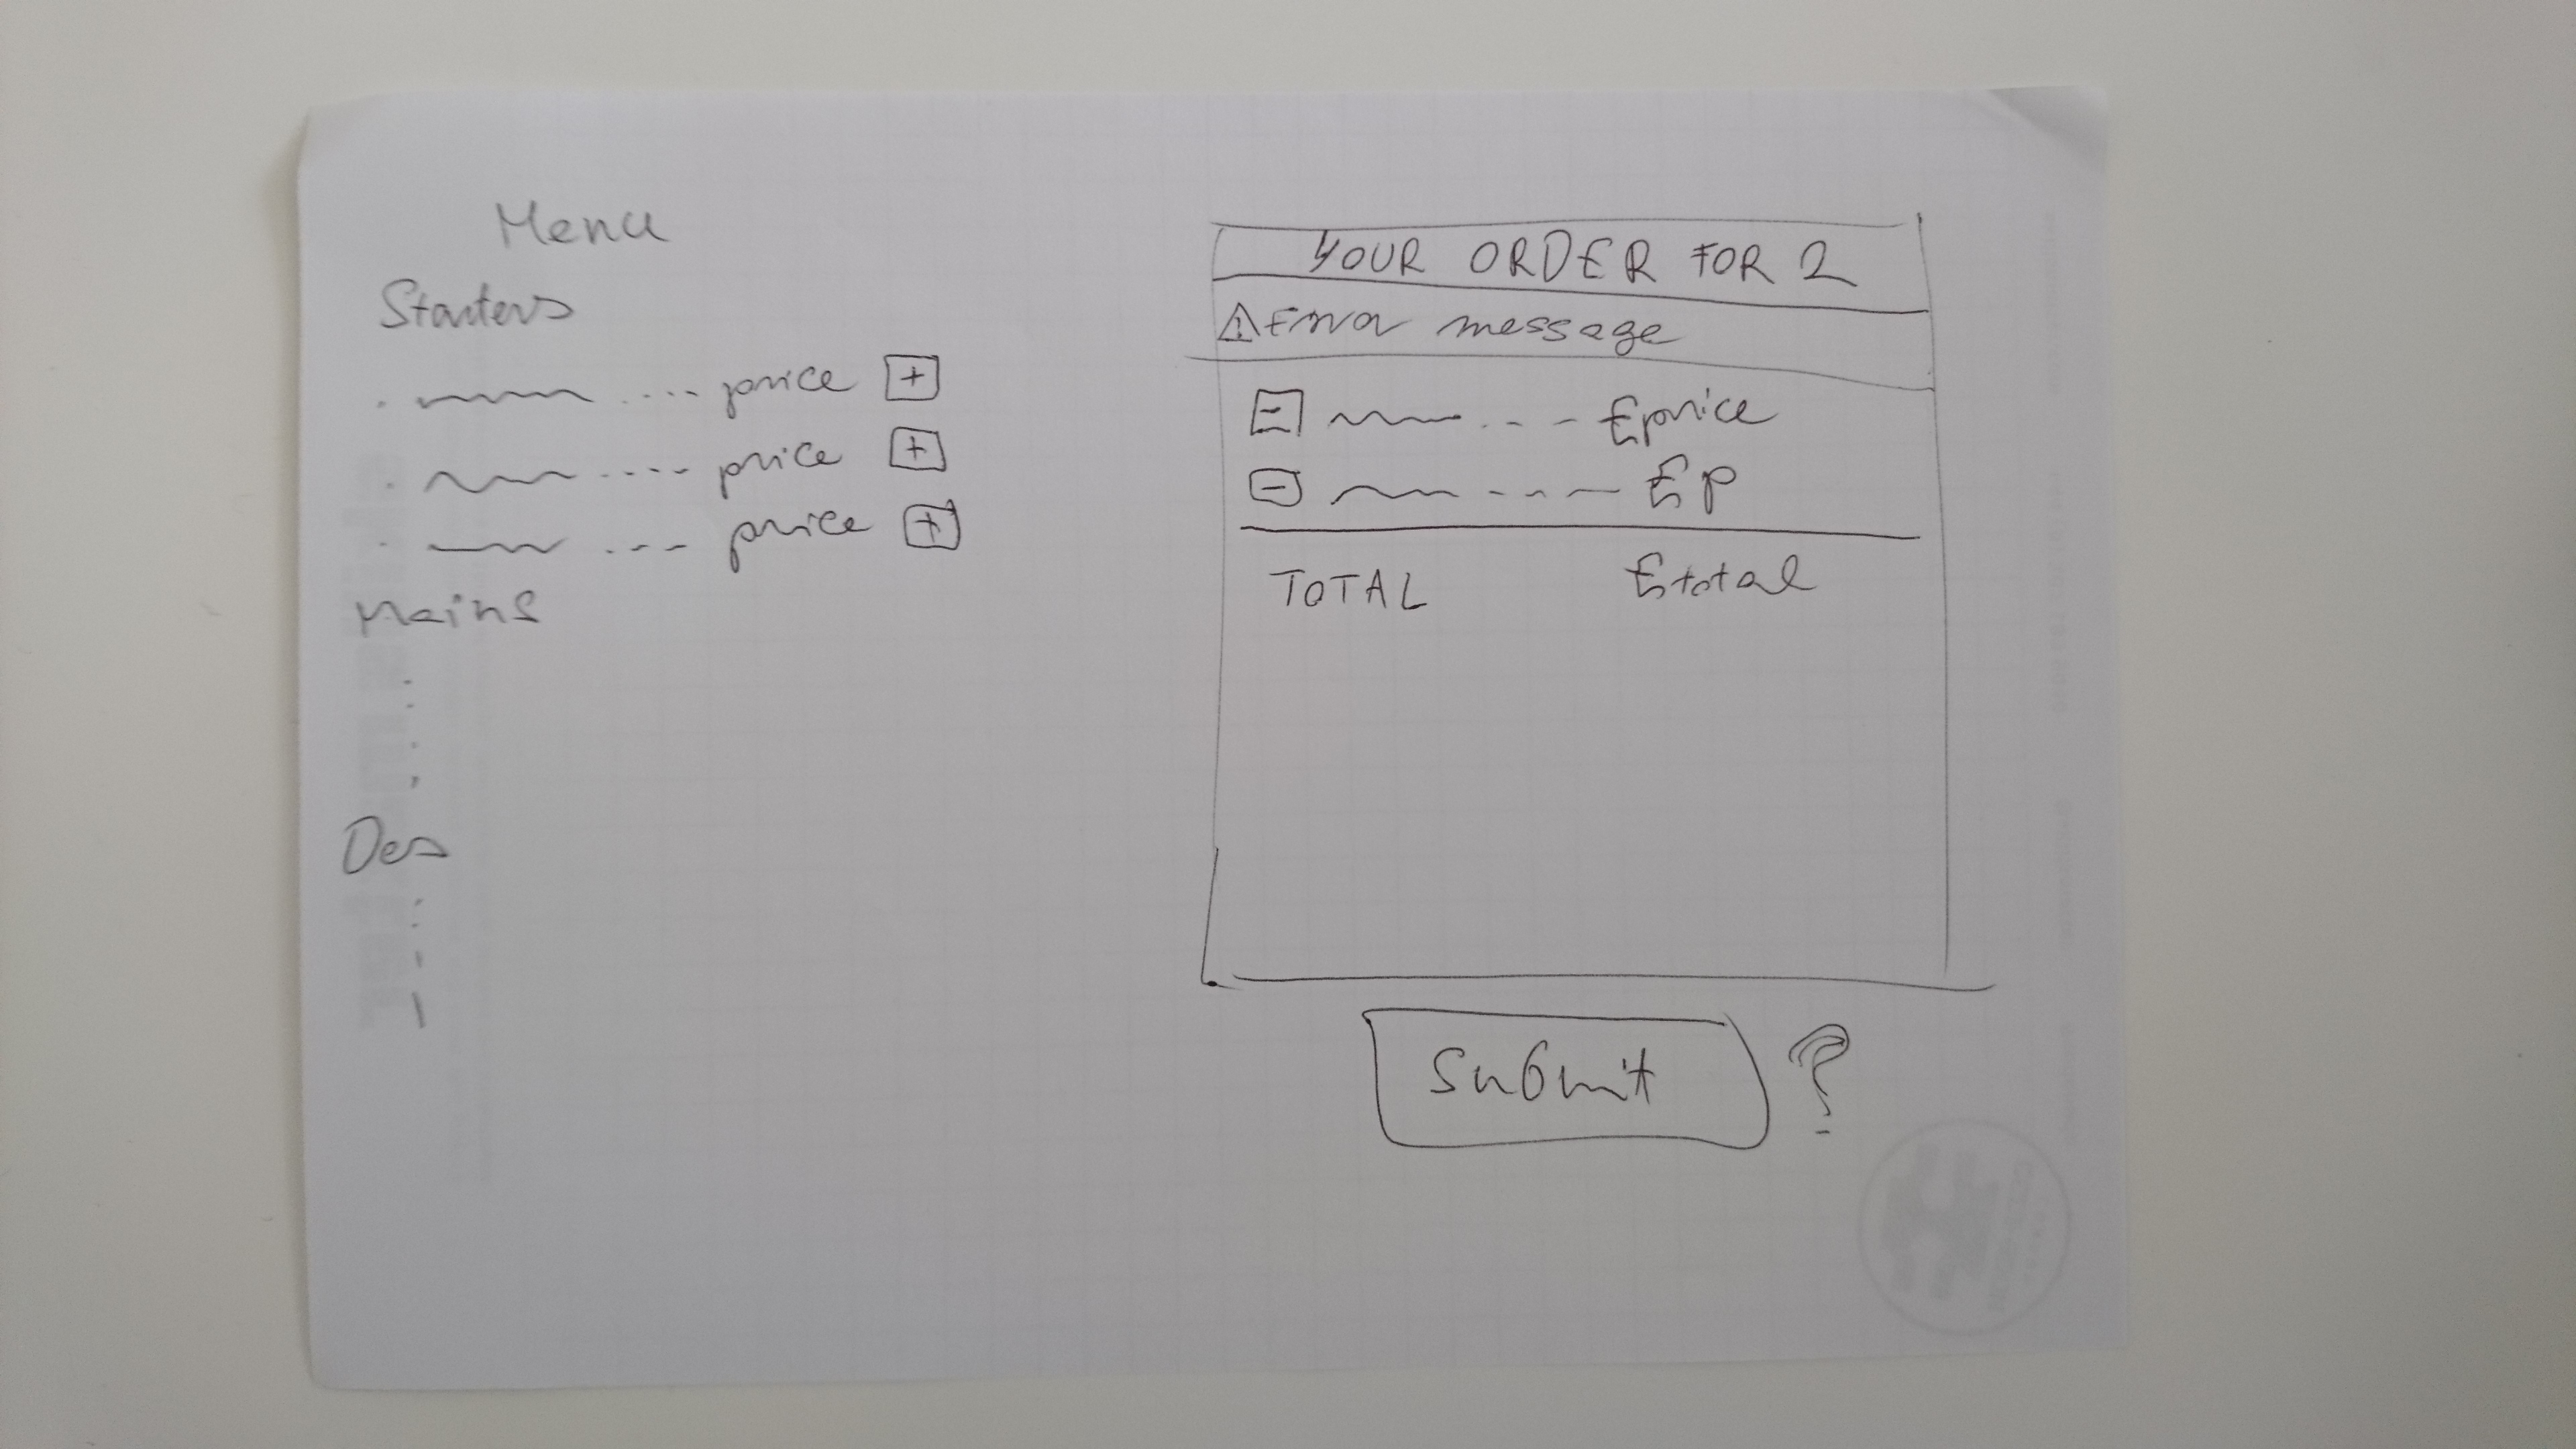 Menu
Starters
.... price +
.... price +
... price +
Mains
Des
YOUR ORDER FOR 2
! Error message
- ... £price
- ... £p
TOTAL £total
Submit ?